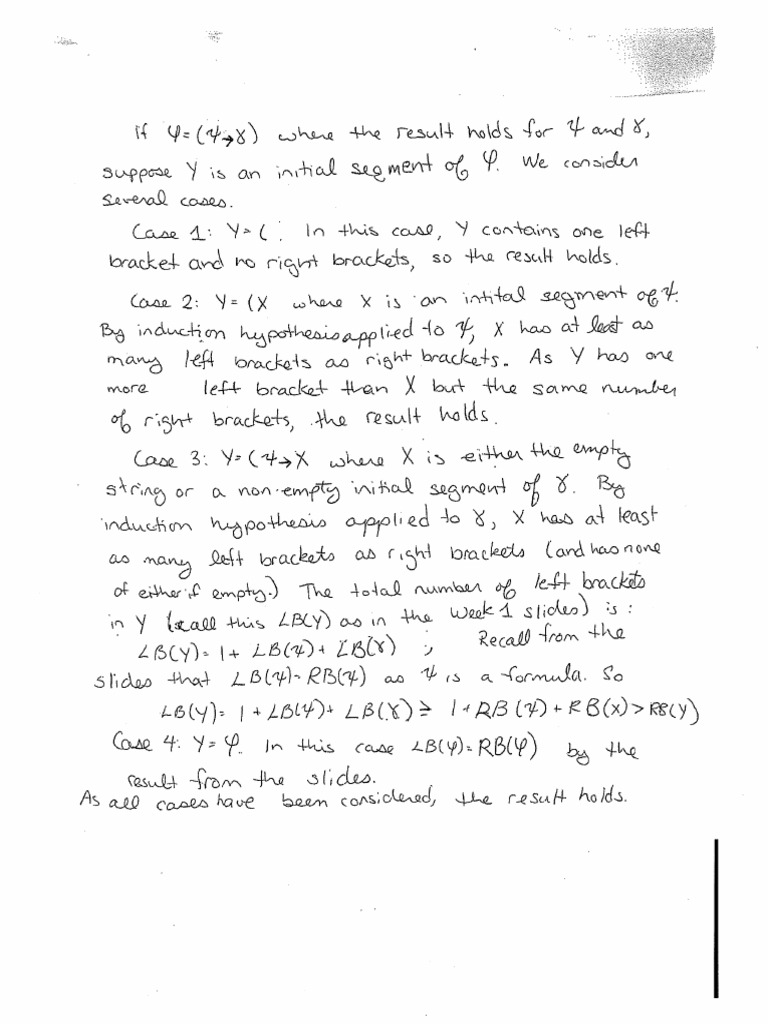 If φ=(ψ→γ) where the result holds for ψ and γ,
suppose Y is an initial segment of φ. We consider
several cases.
Case 1: Y=(. In this case, Y contains one left
bracket and no right brackets, so the result holds.
Case 2: Y=(X where X is an intital segment of ψ.
By induction hypothesis applied to ψ, X has at least as
many left brackets as right brackets. As Y has one
more left bracket than X but the same number
of right brackets, the result holds.
Case 3: Y=(ψ→X where X is either the empty
string or a non-empty initial segment of γ. By
induction hypothesis applied to γ, X has at least
as many left brackets as right brackets (and has none
of either if empty.) The total number of left brackets
in Y (call this LB(Y) as in the Week 1 slides) is:
LB(Y)=1+ LB(ψ)+ LB(γ) ; Recall from the
slides that LB(ψ)=RB(ψ) as ψ is a formula. So
LB(Y)= 1+LB(ψ)+ LB(γ) ≥ 1+RB(ψ)+RB(X)>RB(Y)
Case 4: Y=φ. In this case LB(φ)=RB(φ) by the
result from the slides.
As all cases have been considered, the result holds.